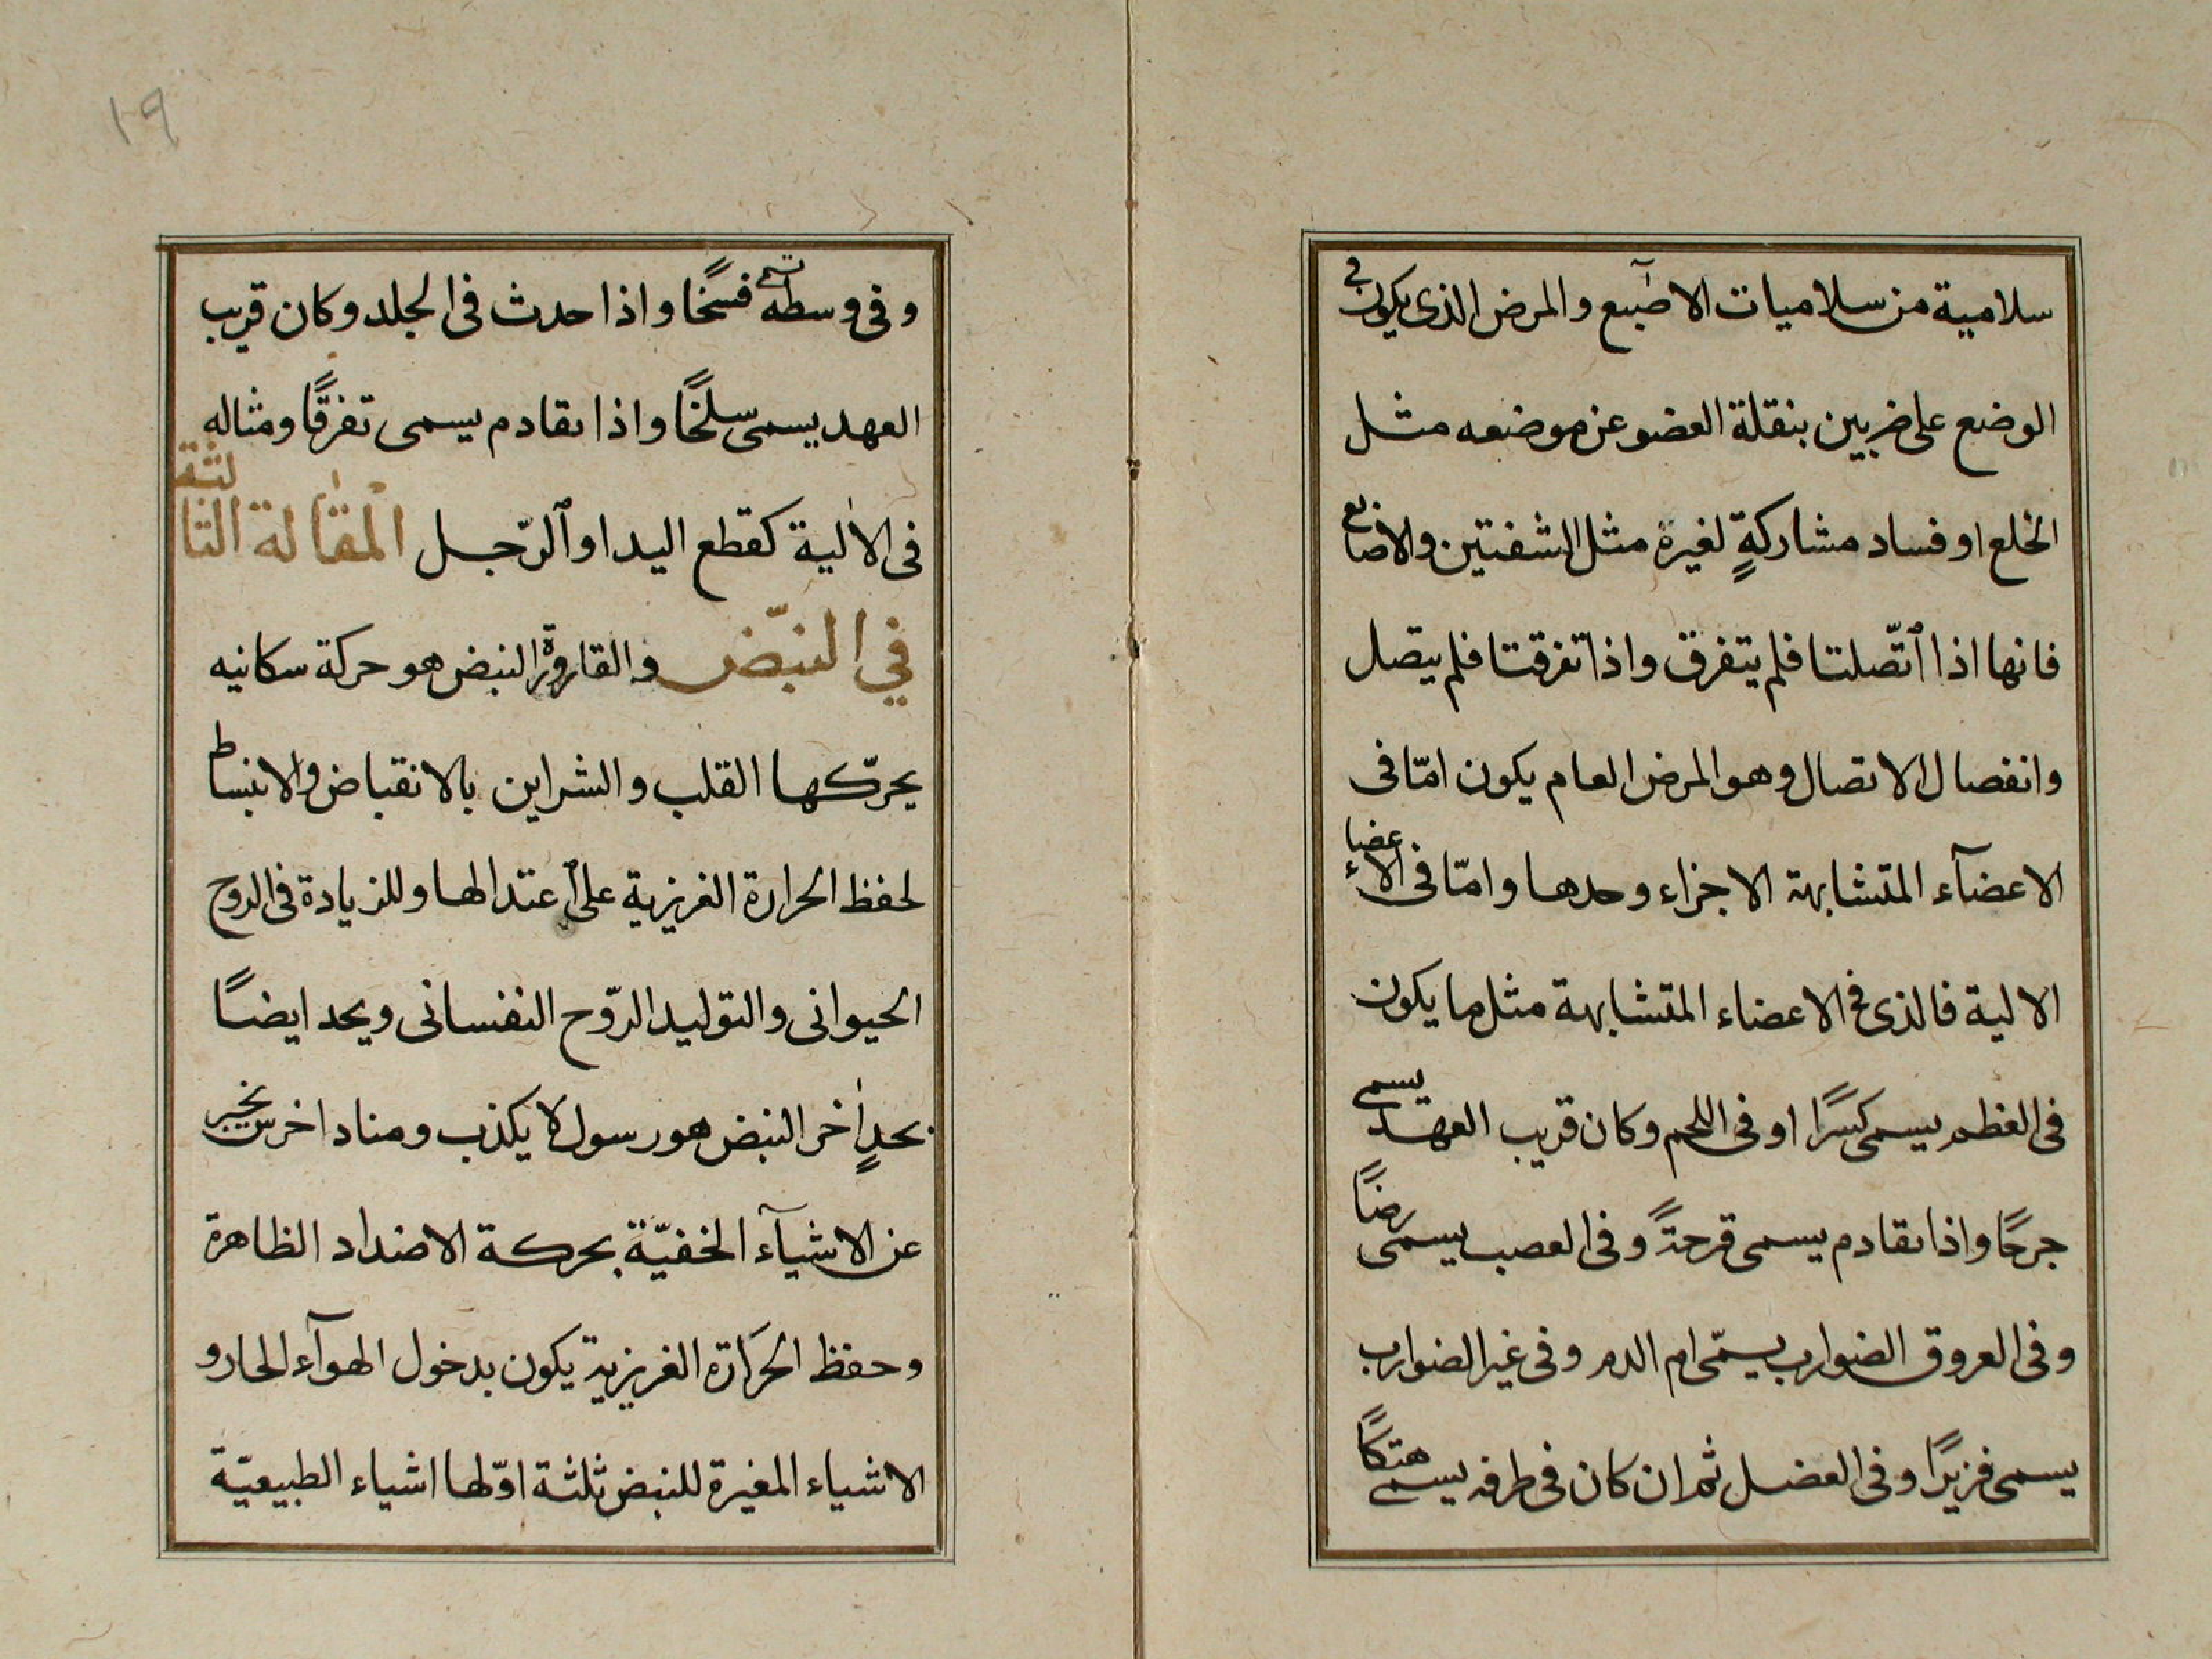 سلامية من سلاميات الاصبع والمرض الذى يكون فى
الوضع على ضربين بنقلة العضو عن موضعه مثل
الخلع او فساد مشاركةٍ لغيره مثل الشفتين والاصابع
فانها اذا ٱتّصلتا فلم يتفرق واذا تفرقتا فلم يتصل
وانفصال الاتصال وهو المرض العام يكون امّا فى
الاعضآء المتشابهة الاجزاء وحدها وامّا فى الاعضاء
الالية فالذى فى الاعضاء المتشابهة مثل ما يكون
فى العظم يسمى كسرًا او فى اللحم وكان قريب العهد يسمى
جرحًا واذا تقادم يسمى قرحةً وفى العصب يسمى رضًا
وفى العروق الضوارب يسمّى ام الدم وفى غير الضوارب
يسمى فزيرًا وفى العضل ثم ان كان فى طرفه يسمى هتكًا
١٩
وفى وسطه يسمى فسخًا واذا حدث فى الجلد وكان قريب
العهد يسمى سلخًا واذا تقادم يسمى تفرقًا ومثاله
فى الالية كقطع اليد او ٱلرّجل المقالة الثالثة
في النبّض والقارورة النبض هو حركة سكانيه
يحرّكها القلب والشراين بالانقباض والانبساط
لحفظ الحرارة الغريزية على ٱعتدالها وللزيادة فى الروح
الحيوانى والتوليد الرّوح النفسانى ويحد ايضًا
بحدٍ اٰخر النبض هو رسول لا يكذب ومناد اخرس يخبر
عن الاشيآء الخفيّة بحركة الاضداد الظاهرة
وحفظ الحَرَارة الغريزية يكون بدخول الهوآء الحار و
الاشياء المغيرة للنبض ثلثة اوّلها اشياء الطبيعيّة